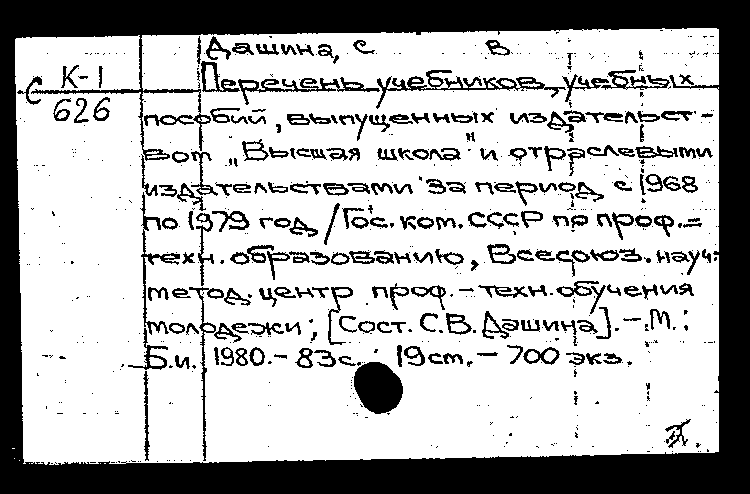 Дашина, С В
С К-1
626
Перечень учебников, учебных
пособий, выпущенных издательст-
вом „Высшая школа" и отраслевыми
издательствами за период с 1968
по 1979 год / Гос. ком. СССР по проф.=
техн. образованию, Всесоюз. науч.
метод. центр проф. - техн. обучения
молодежи; [Сост. С.В. Дашина]. - М.:
Б.и., 1980. - 83с.; 19см. - 700 экз.